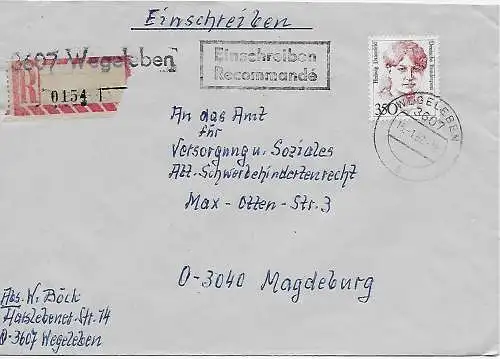 Einschreiben
3607 Wegeleben
R
0154
Einschreiben
Recommandé
350
WEGELEBEN
3607
An das Amt
für
Versorgung u. Soziales
Abt. Schwerbehindertenrecht
Max-Otten-Str. 3
O-3040 Magdeburg
Abs. W. Böck
Hatslebener-Str. 14
O-3607 Wegeleben